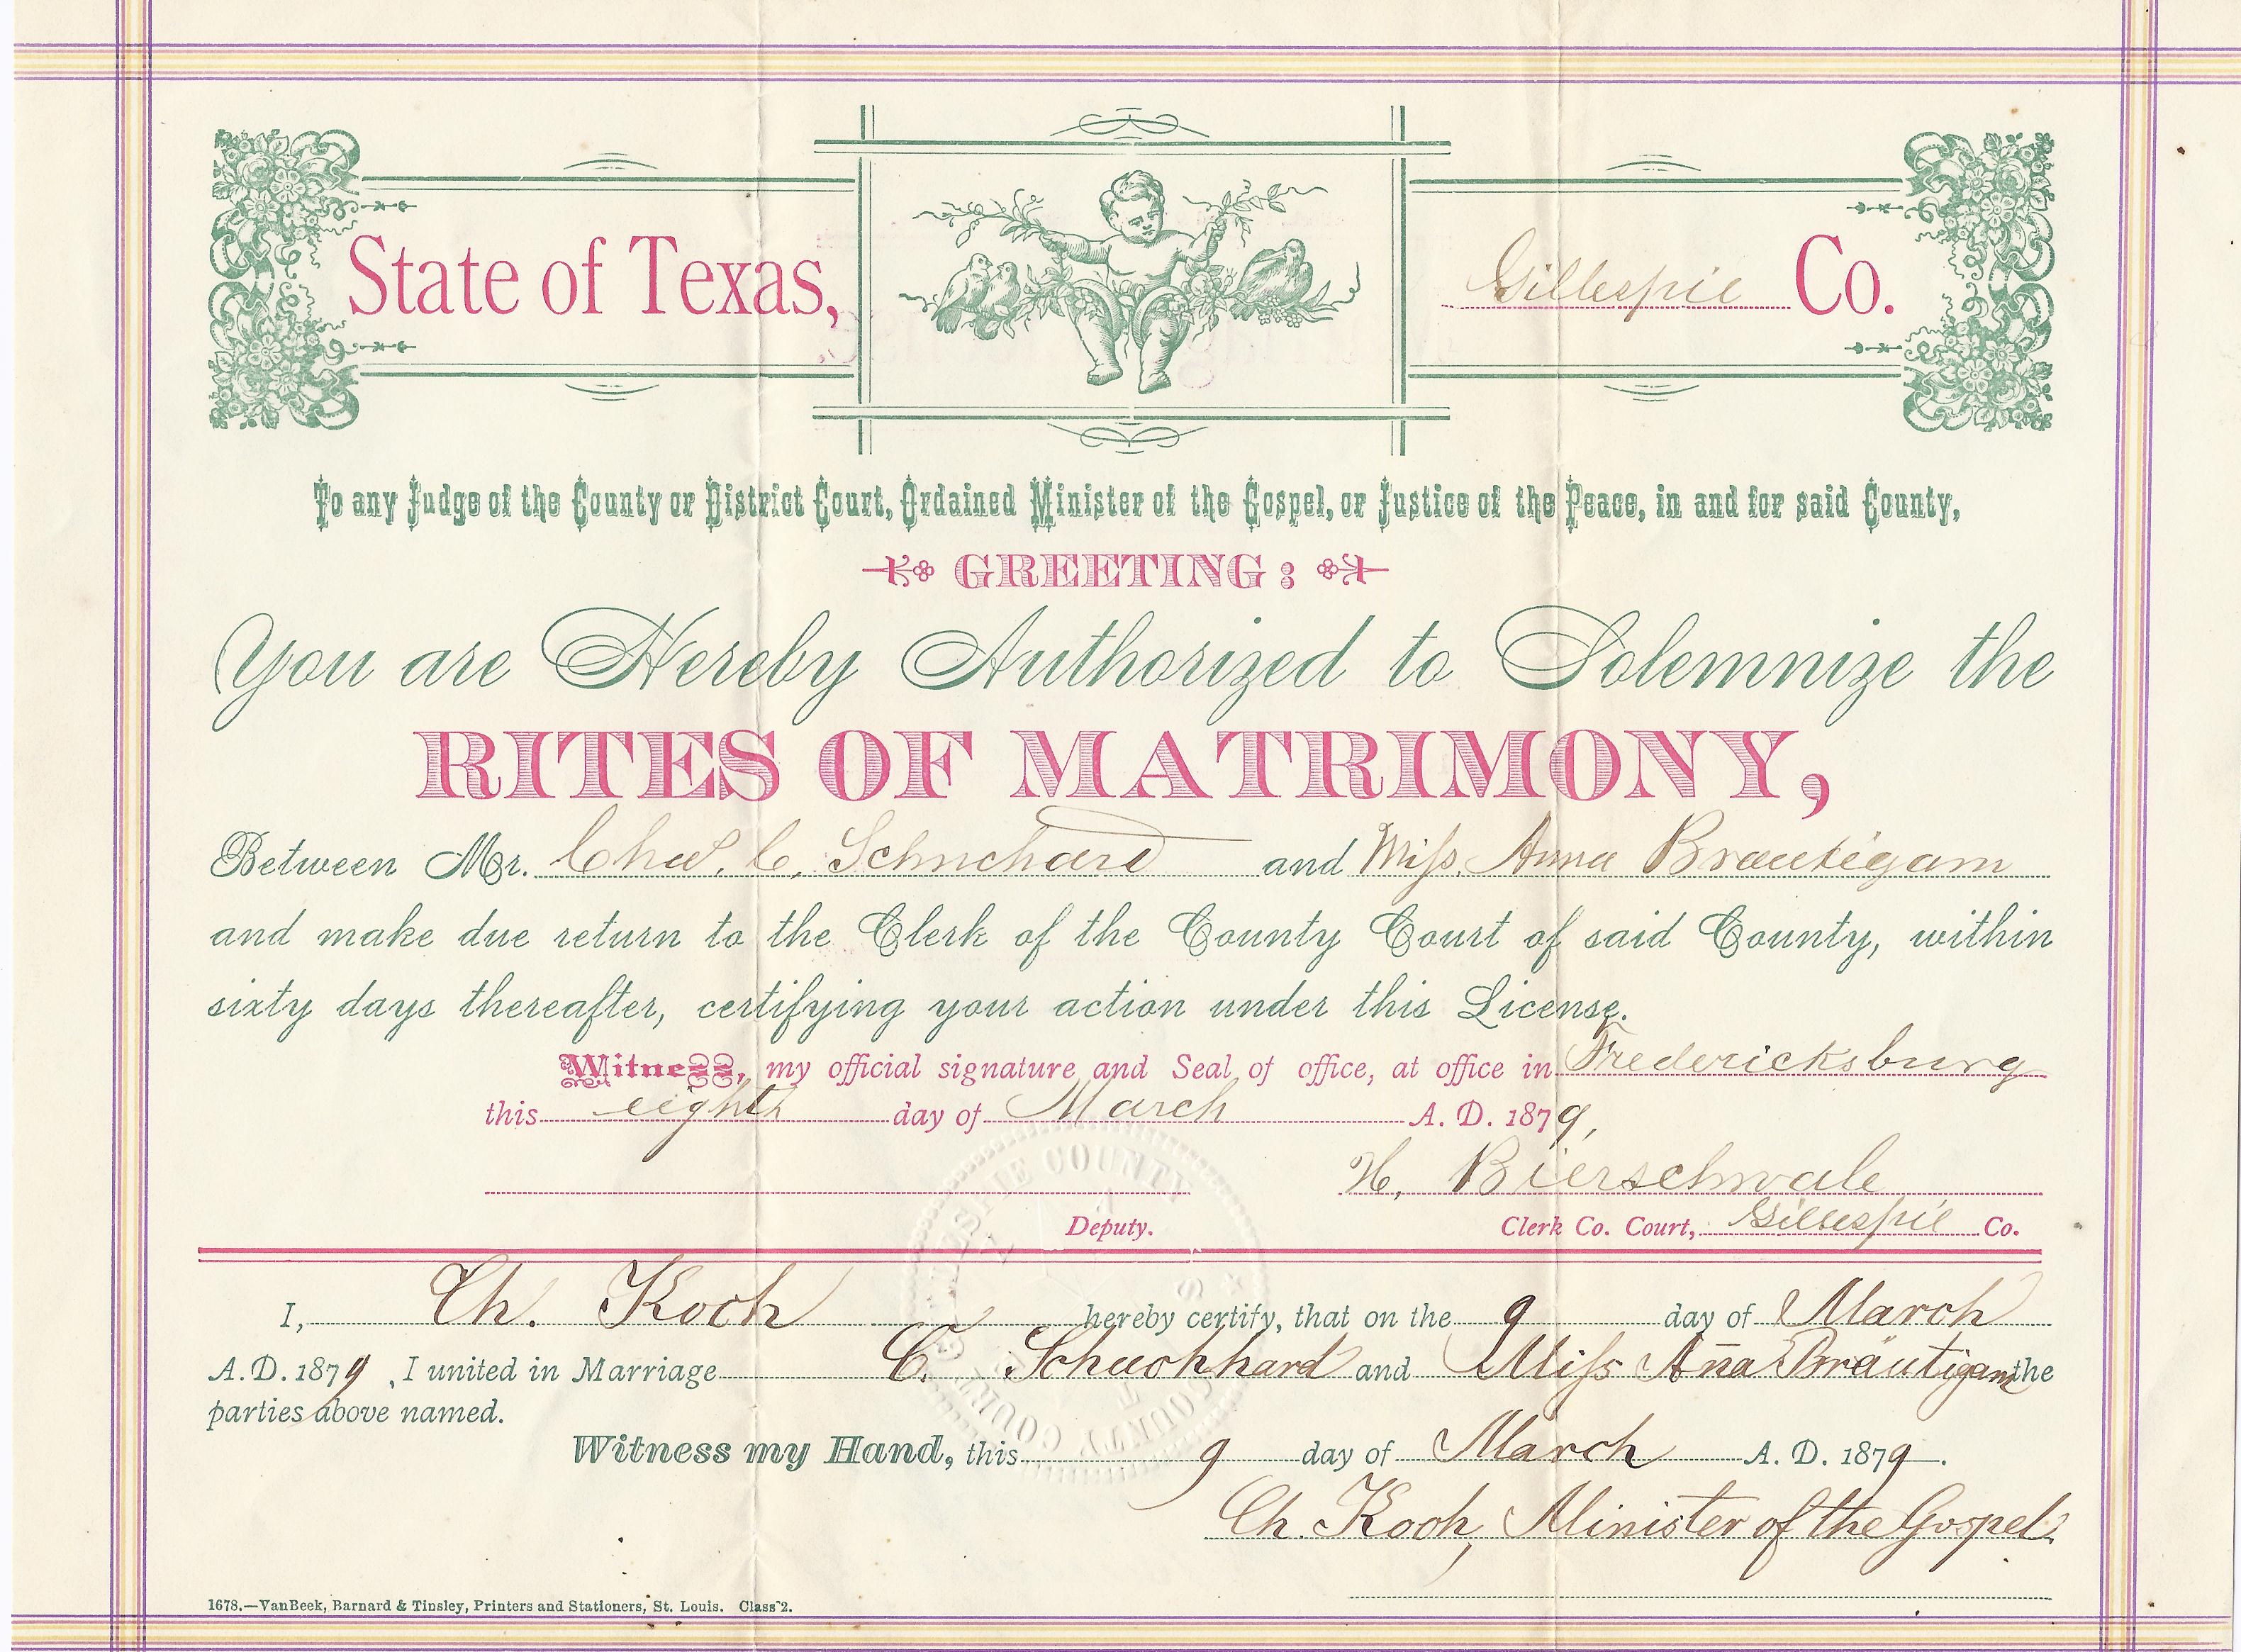 State of Texas, Gillespie Co.
To any Judge of the County or District Court, Ordained Minister of the Gospel, or Justice of the Peace, in and for said County,
GREETING:
You are Hereby Authorized to Solemnize the
RITES OF MATRIMONY,
Between Mr. Chas. C. Schuchard and Miss. Anna Brautigam
and make due return to the Clerk of the County Court of said County, within
sixty days thereafter, certifying your action under this License.
Witness, my official signature and Seal of office, at office in Fredericksburg
this eighth day of March A. D. 1879,
H. Bierschwale
Deputy. Clerk Co. Court, Gillespie Co.
I, Ch. Koch hereby certify, that on the 9 day of March
A. D. 1879, I united in Marriage C. Schuchhard and Miss Aña Bräutigam the
parties above named.
Witness my Hand, this 9 day of March A. D. 1879.
Ch. Koch, Minister of the Gospel.
1678.—VanBeek, Barnard & Tinsley, Printers and Stationers, St. Louis. Class 2.